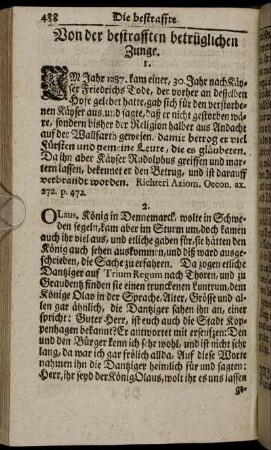 438 Die bestraffte
Von der bestrafften betrüglichen
Zunge.
1.
IM Jahr 1287. kam einer, 30. Jahr nach Käy-
ser Friedrichs Tode, der vorher an desselben
Hofe gelebet hatte, gab sich für den verstorbe-
nen Käyser aus, und sagte, daß er nicht gestorben wä-
re, sondern bisher der Religion halber aus Andacht
auf der Wallfarth gewesen. damit betrog er viel
Fürsten und gemeine Leute, die es gläubeten.
Da ihn aber Käyser Rudolphus greiffen und mar-
tern lassen, bekennet er den Betrug, und ist darauff
verbrandt worden. Richteri Axiom. Oecon. ax.
272. p. 472.
2.
OLaus, König in Dennemarck, wolte in Schwe-
den segeln, kam aber im Sturm um, doch kamen
auch ihr viel aus, und etliche gaben für, sie hätten den
König auch sehen auskommen, und diß ward ausge-
schrieben, die Sache zu erfahren. Da zogen etliche
Dantziger auf Trium Regum nach Thoren, und zu
Graudentz finden sie einen trunckenen Luntrum, dem
Könige Olao in der Sprache, Alter, Grösse und al-
len gar ähnlich, die Dantziger sahen ihn an, einer
spricht: Guter Herr, ist euch auch die Stadt Kop-
penhagen bekannt? Er antwortet mit erseufzen: Den
und den Bürger kenn ich sehr wohl, und ist nicht sehr
lang, da war ich gar frölich allda. Auf diese Worte
nahmen ihn die Dantziger heimlich für und sagten:
Herr, ihr seyd der König Olaus, wolt ihr es uns lassen
ge-